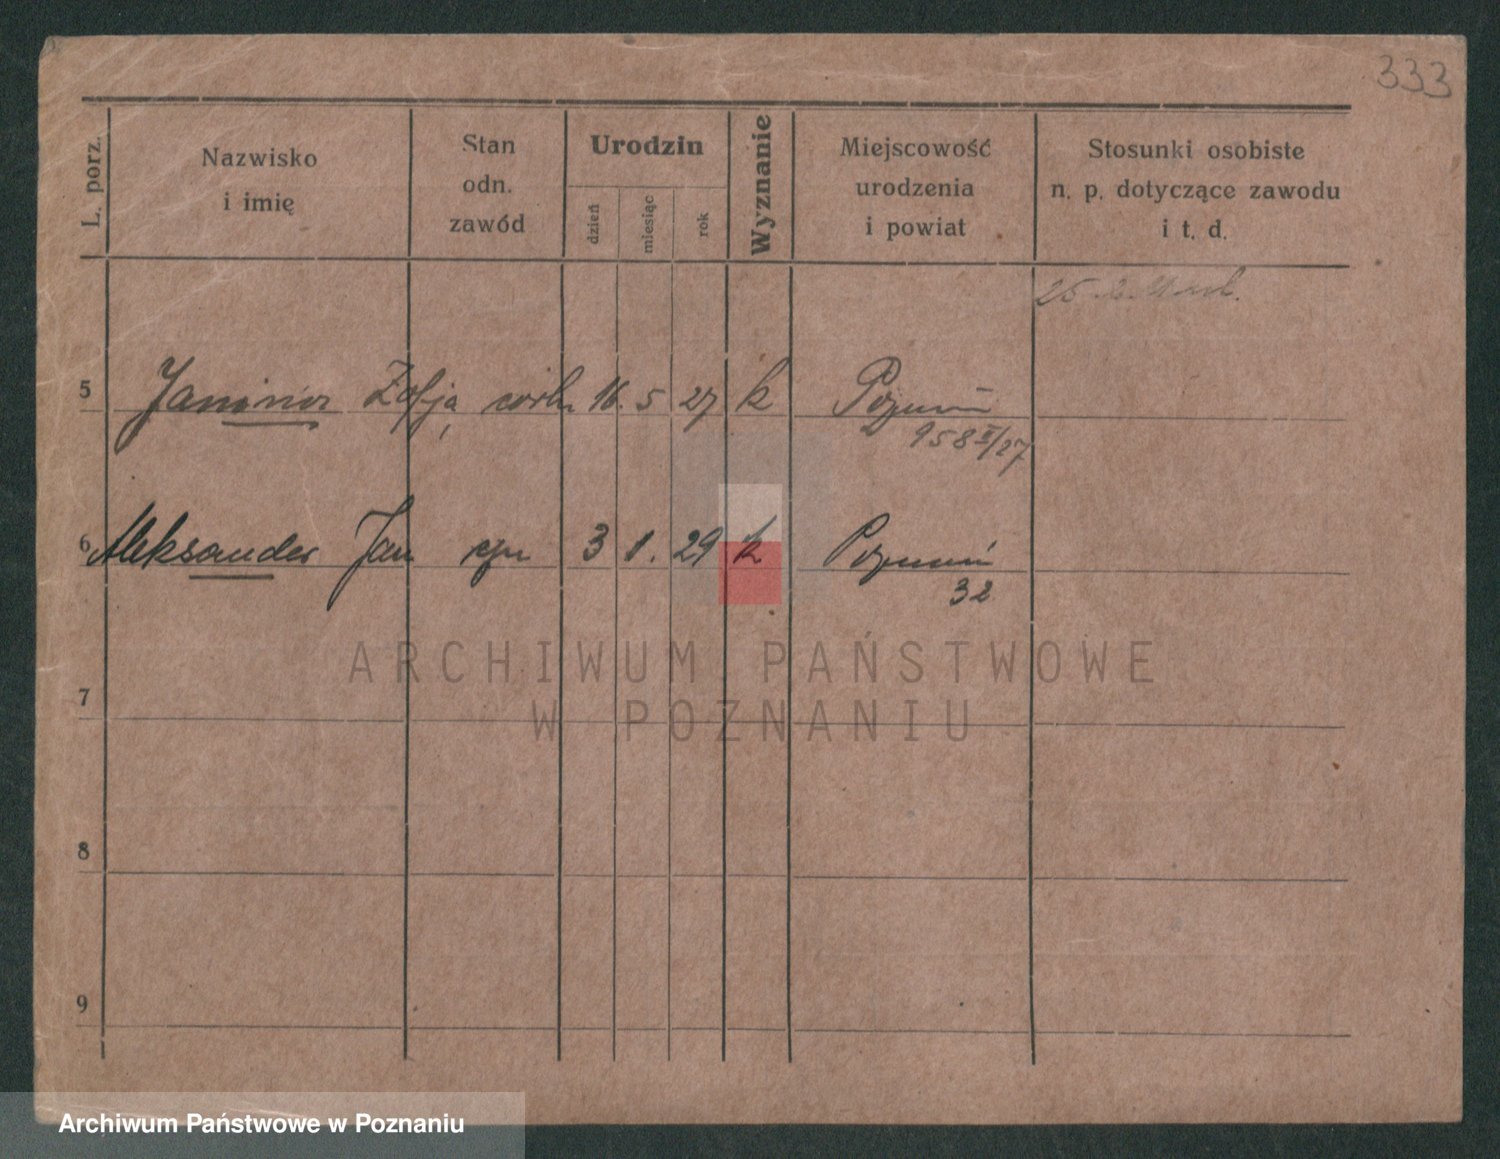 333
L. porz.
Nazwisko
i imię
Stan
odn.
zawód
Urodzin
dzień
miesiąc
rok
Wyznanie
Miejscowość
urodzenia
i powiat
Stosunki osobiste
n. p. dotyczące zawodu
i t. d.
25
5 Janina Zofja, córka 16. 5 27 k Poznań
958 II/27
6 Aleksander Jan syn 3 1. 29 k Poznań
32
ARCHIWUM PAŃSTWOWE
W POZNANIU
7
8
9
Archiwum Państwowe w Poznaniu